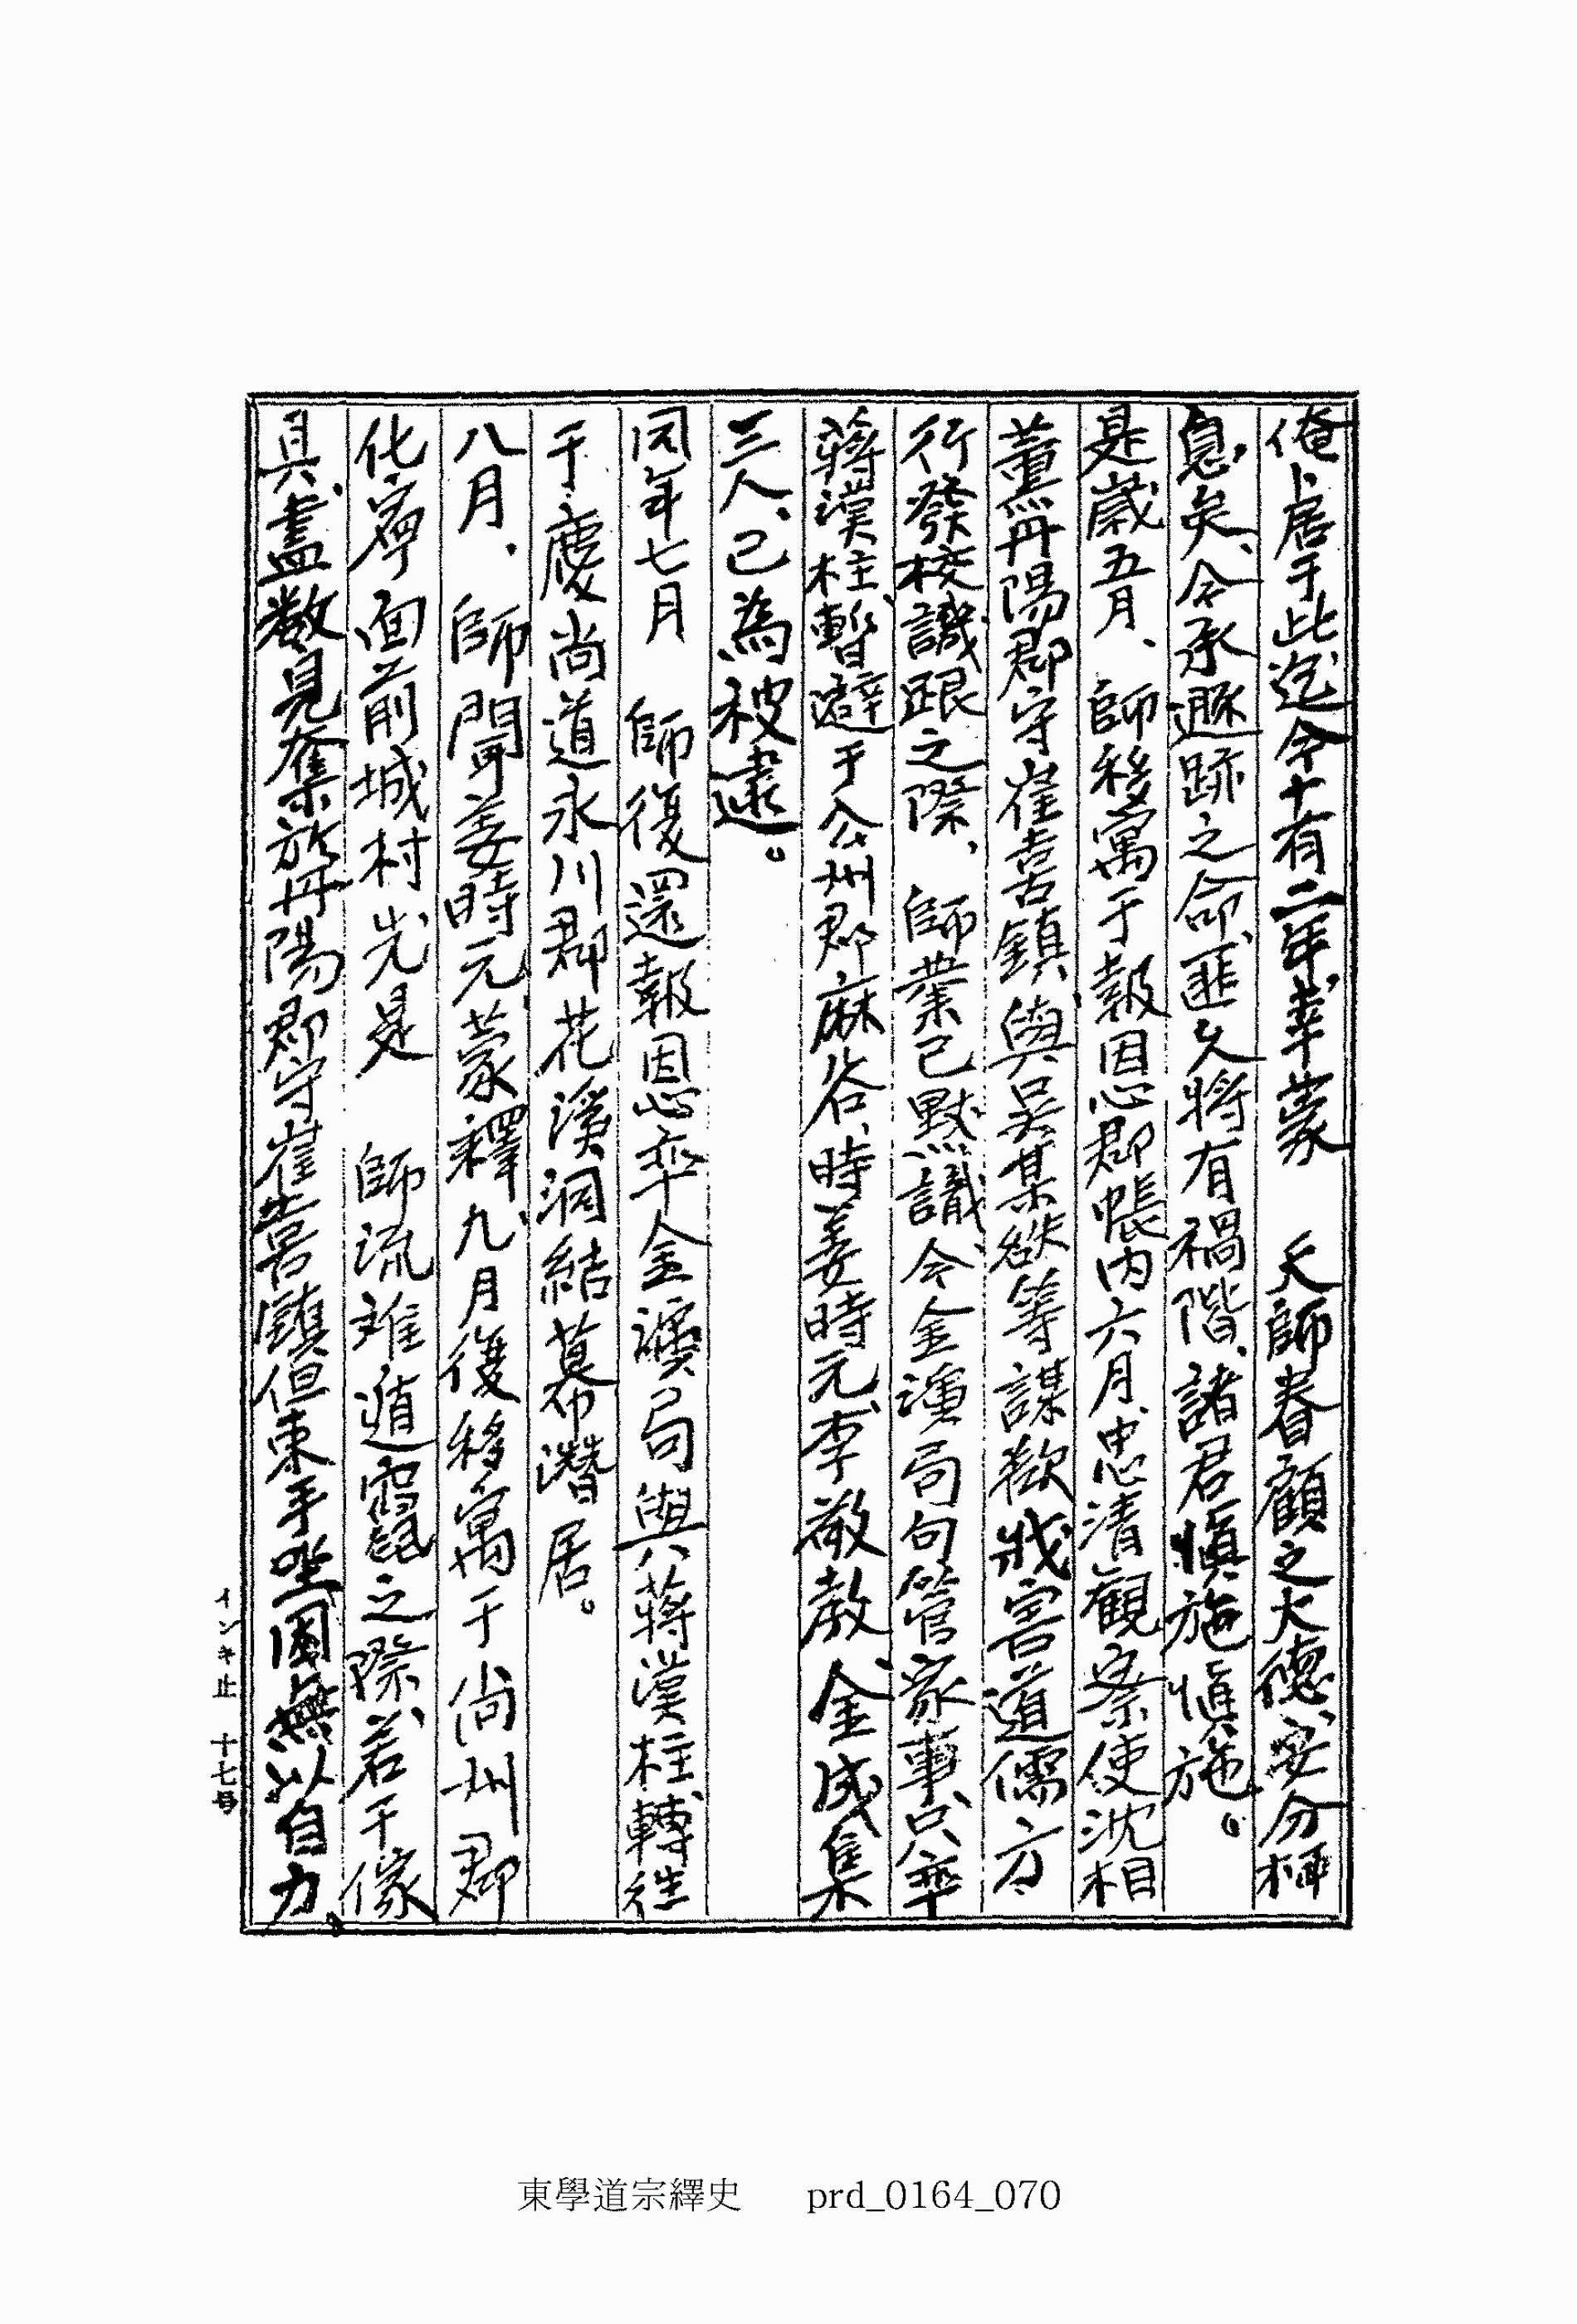 俺卜居于此迄今十有二年幸蒙　天師眷顧之大德、安分栖
息矣、今承遯跡之命、匪久將有禍階、諸君愼旃愼旃。
是歲五月、師移寓于報恩郡帳內六月、忠淸觀察使沈相
薰丹陽郡守崔喜鎭、與吳某欲等謀欲戕害道儒、方
行發校譏跟之際、師業已默識、令金演局句管家事、只率
蔣漢柱、暫避于公州郡麻谷、時姜時元、李敬敎、金成集
三人、已為被逮。
同年七月　師復還報恩率金演局與蔣漢柱、轉徃
于慶尙道永川郡花溪洞結幕潛居。
八月、師聞姜時元、蒙釋、九月後移寓于尙州郡
化寧面前城村先是　師流難遁竄之際、若干傢
具、盡數見奪於丹陽郡守崔喜鎭但束手坐困無以自力、
インキ止　十七号
東學道宗繹史　prd_0164_070